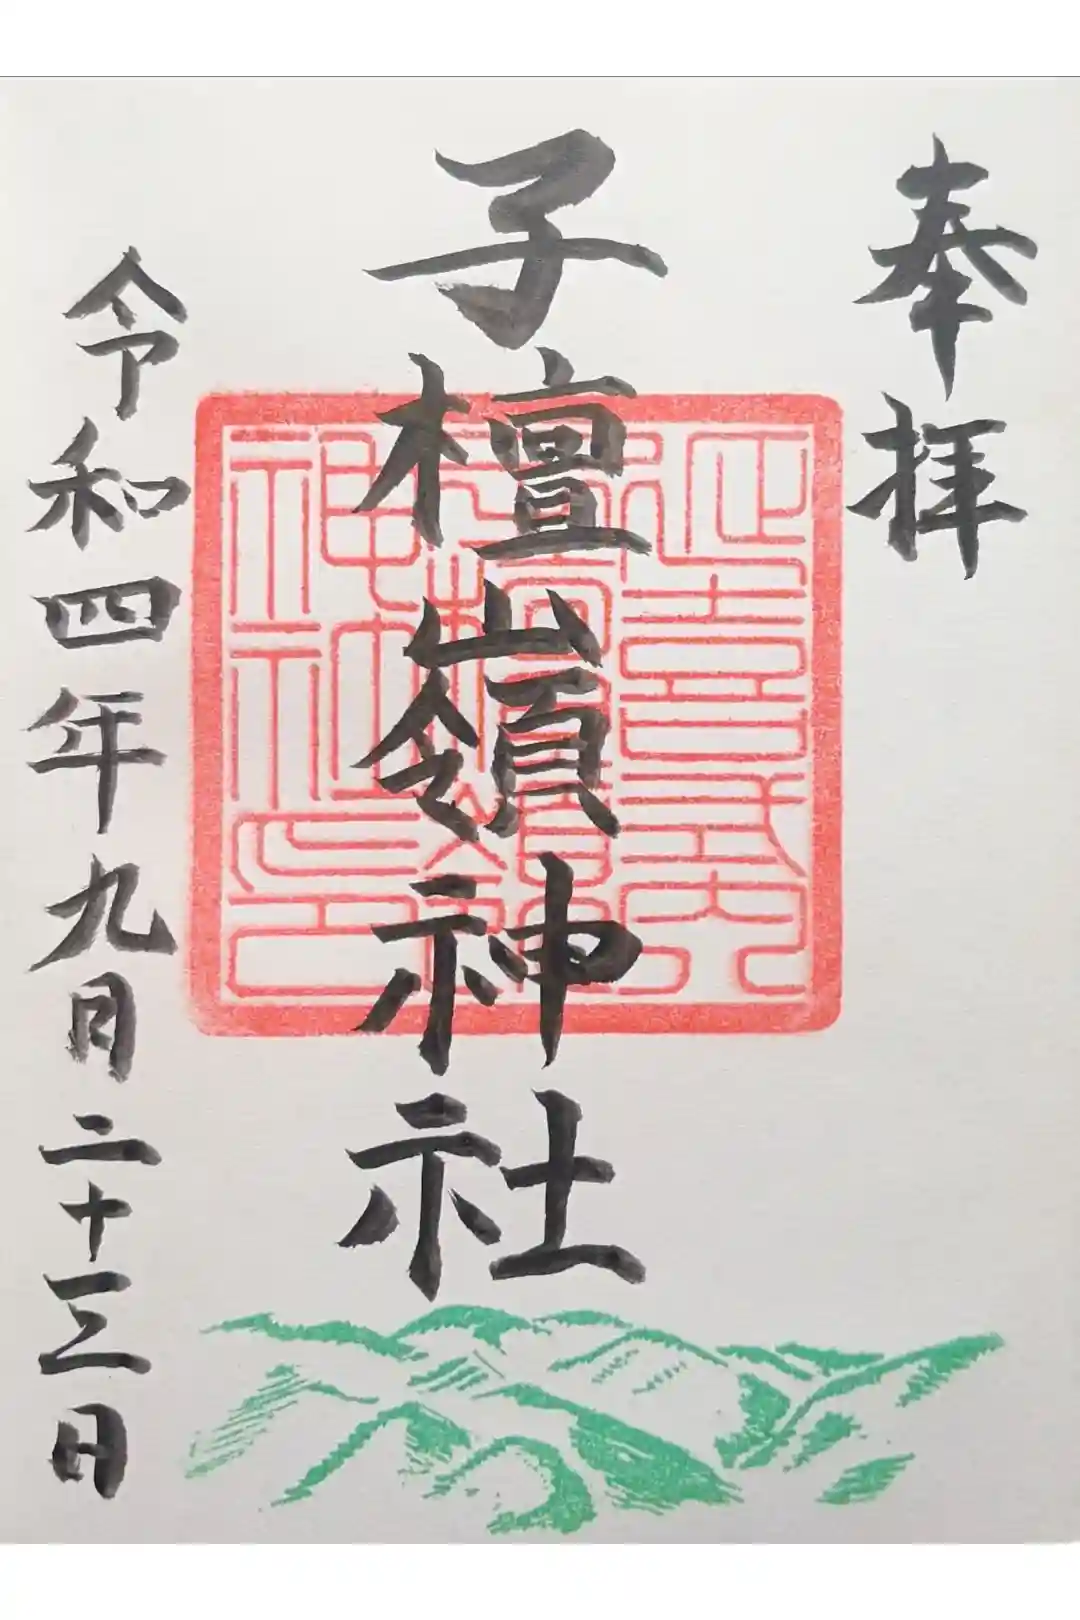 奉拝
子檀嶺神社
延喜式内
子檀嶺
神社印
令和四年九月二十三日